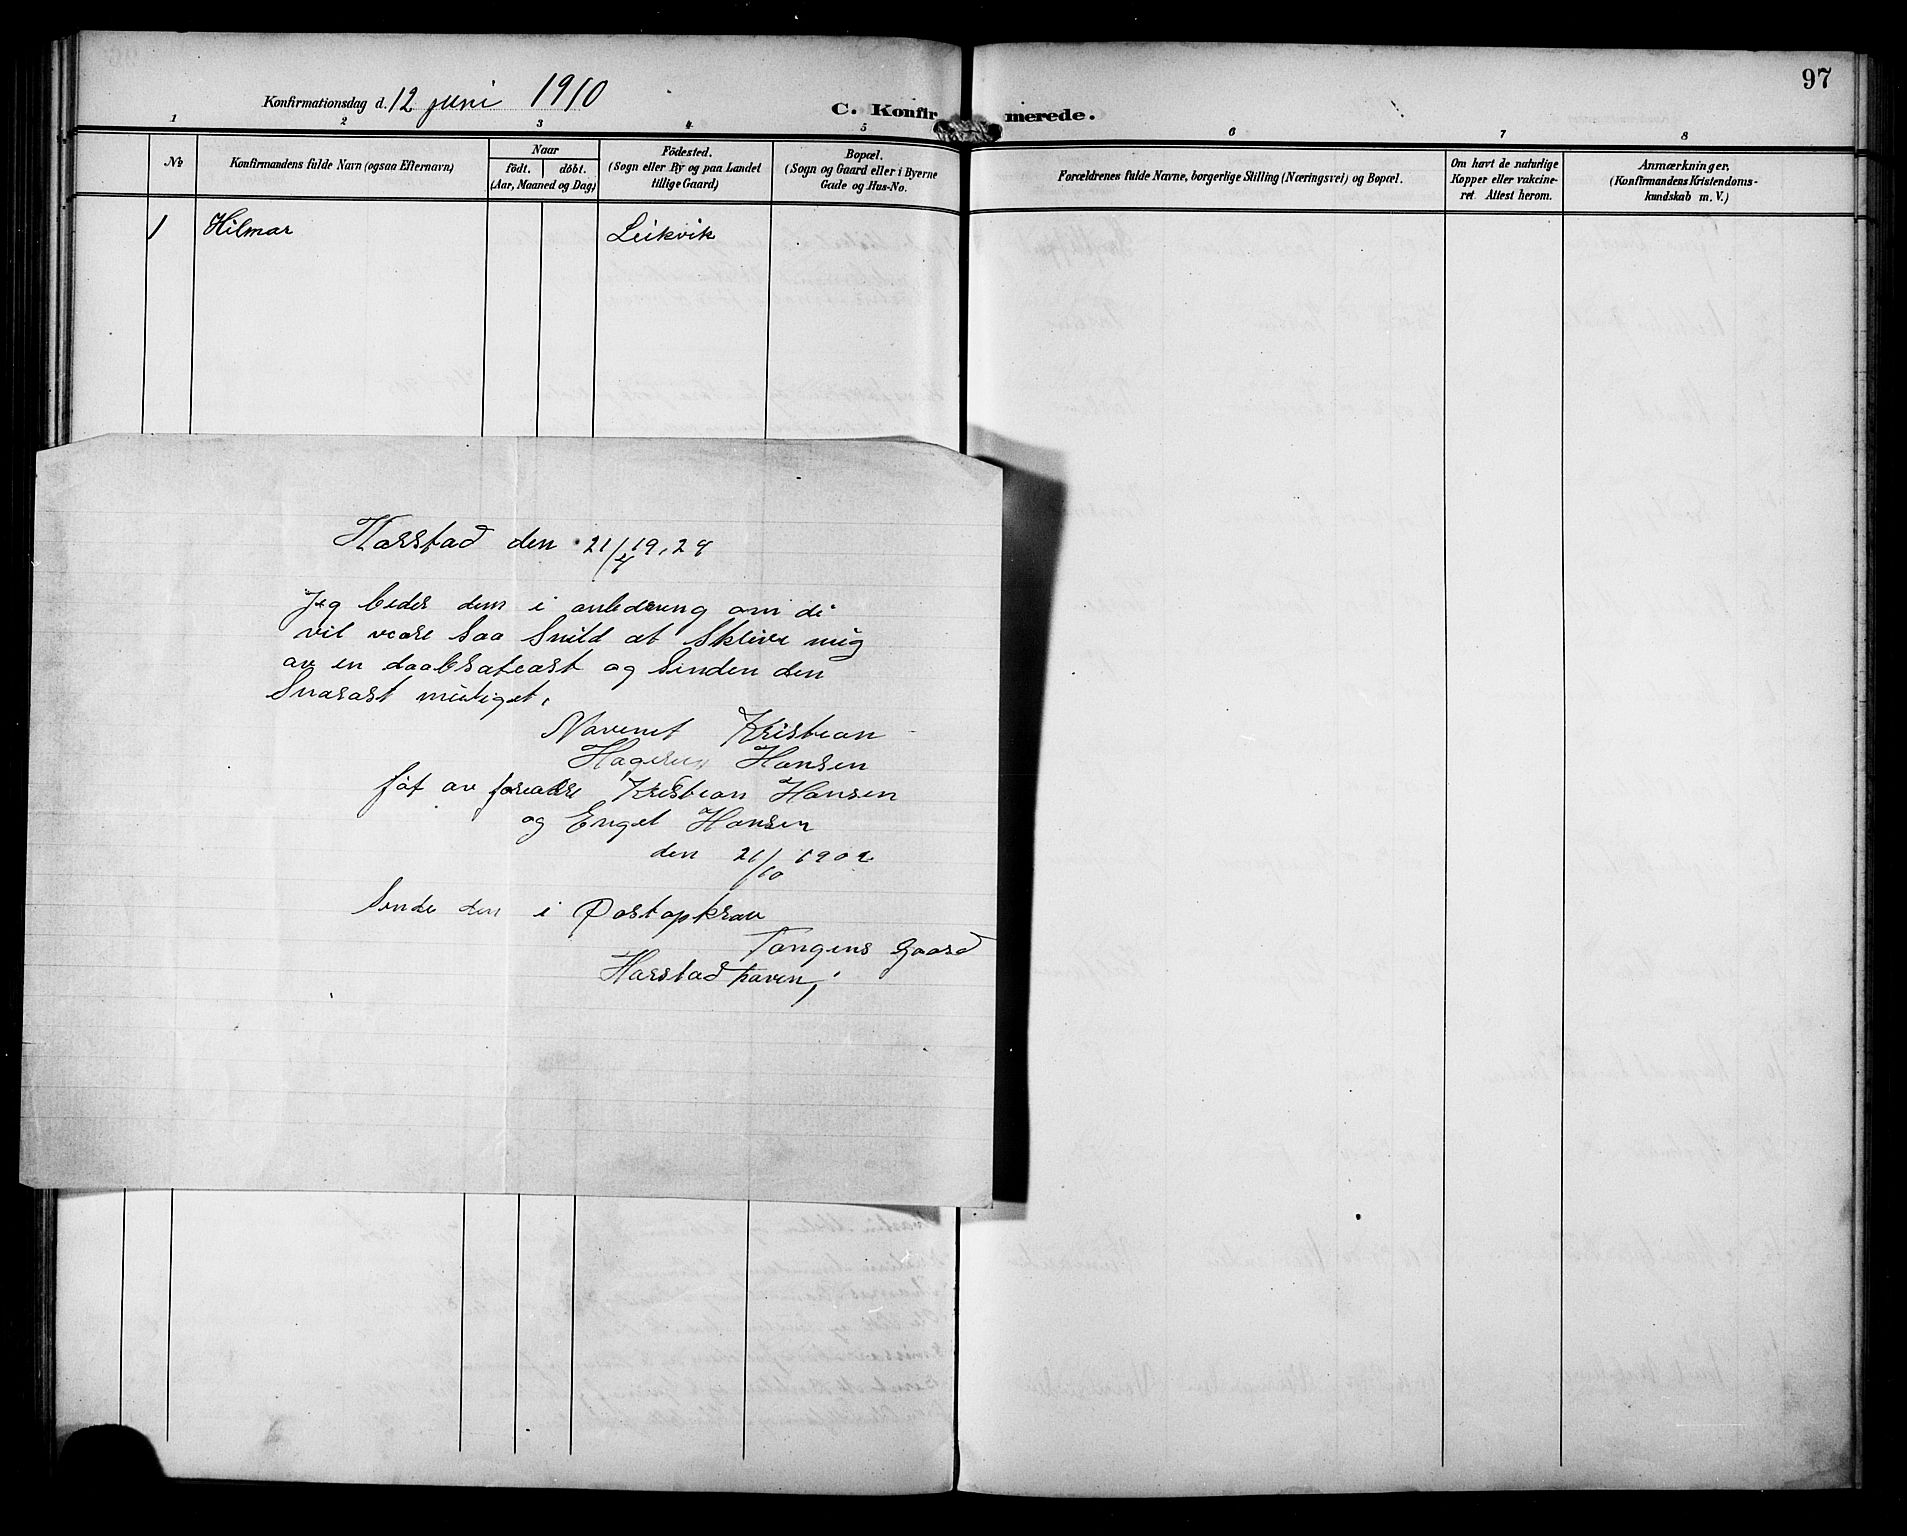 97
Konfirmationsdag d. 12 juni 1910
C. Konfirmerede.
1 2 3 4 5 6 7 8
No
Konfirmandens fulde Navn (ogsaa Efternavn)
Naar
födt. döbt.
(Aar, Maaned og Dag)
Födested.
(Sogn eller By og paa Landet
tillige Gaard)
Bopæl.
(Sogn og Gaard eller i Byerne
Gade og Hus-No.
Forældrenes fulde Navne, borgerlige Stilling (Næringsvei) og Bopæl.
Om havt de naturlige
Kopper eller vakcine-
ret. Attest herom.
Anmærkninger,
(Konfirmandens Kristendoms-
kundskab m. V.)
1 Hilmar Leikvik
Harstad den 21/4 19,24
Jeg beder dem i anledning om di
vil være saa Snild at Skrive mig
av en daabsateast og Senden den
Snarast muliget,
Navenet Kristean
Hansen
föt av Kristean Hansen
og Engel Hansen
den 21/10 1902
Sende den i Postopkrav
Tangens Gaard
Harstad haven,